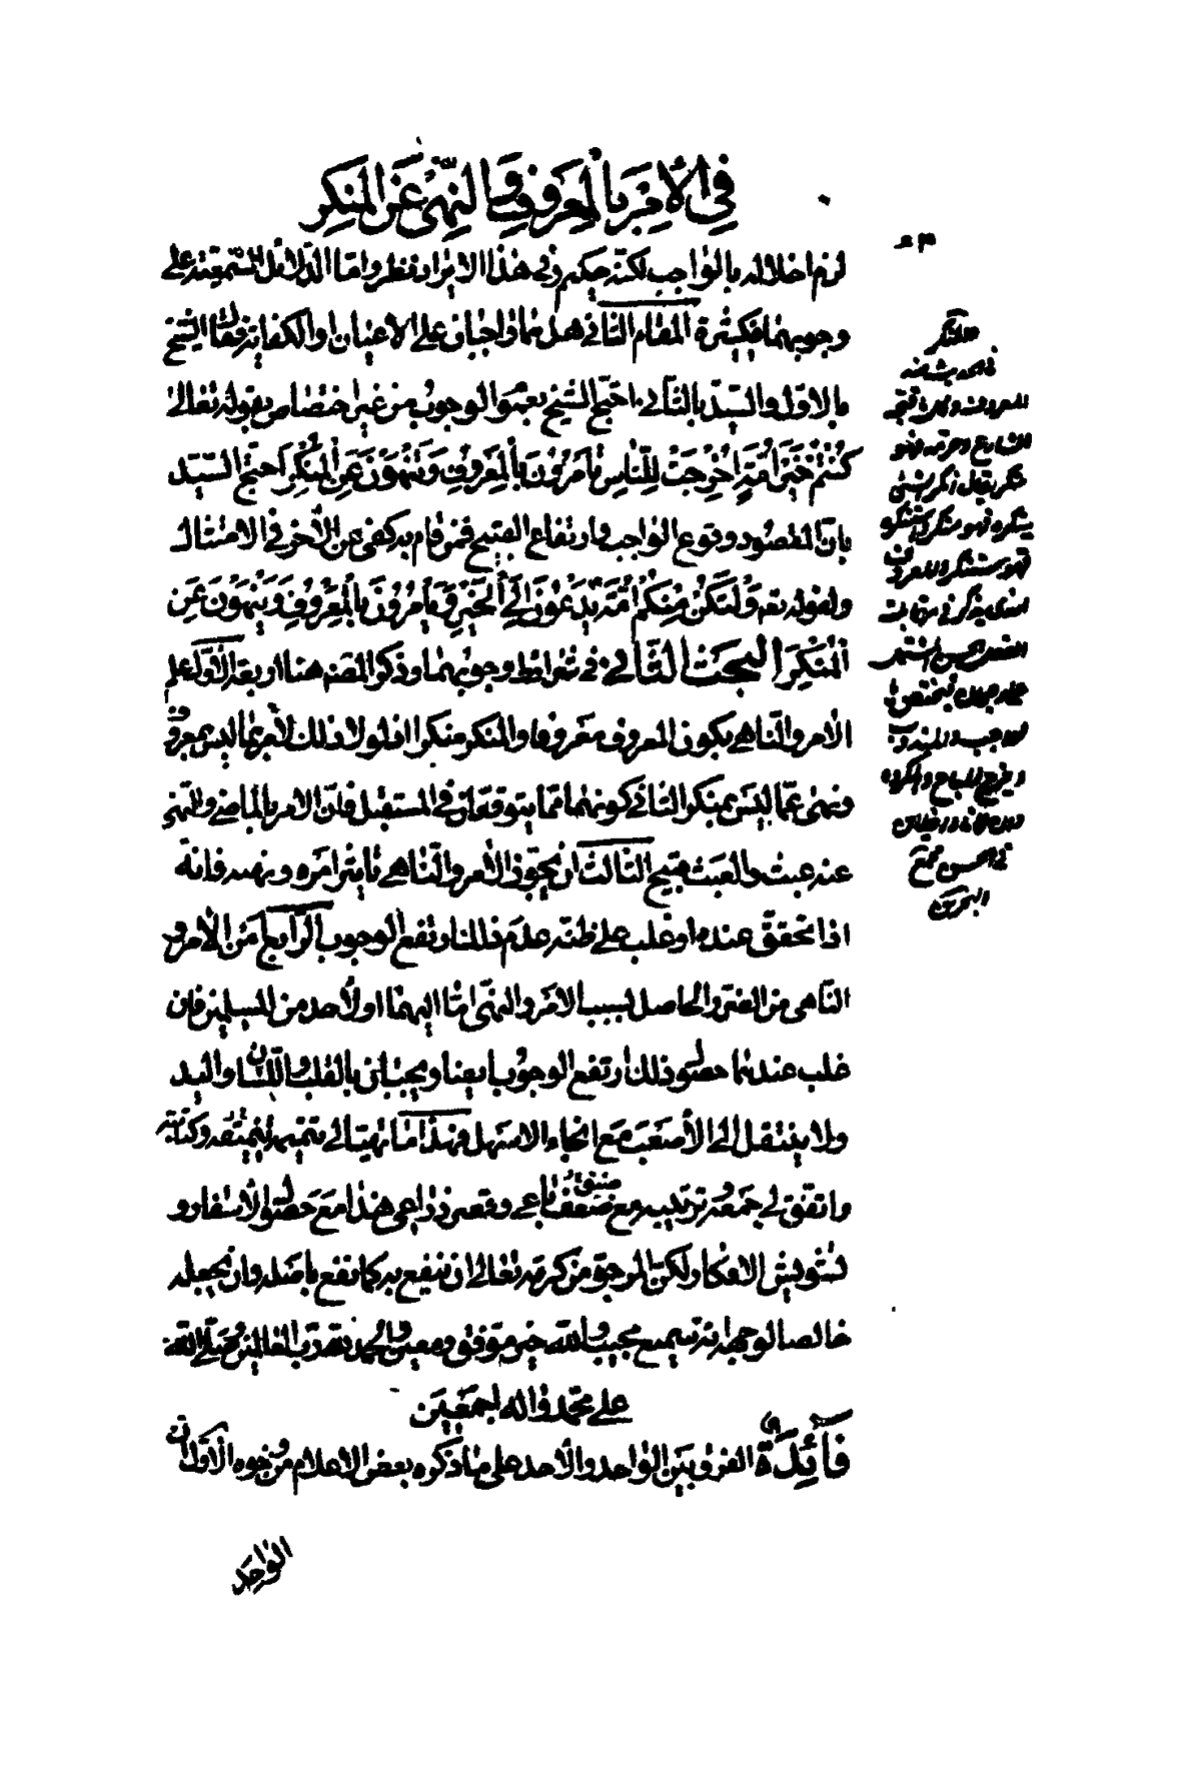 في الأمر بالمعروف والنهي عن المنكر
لزم اخلاله بالواجب لكنه حكيم وفي هذا الايراد نظر واما الدلائل السمعية على
وجوبهما فكثيرة المقام الثاني هل هما واجبان على الاعيان او الكفاية فقال الشيخ
بالاول والسيد بالثاني احتج الشيخ بعموم الوجوب من غير اختصاص بقوله تعالى
كُنْتُمْ خَيْرَ أُمَّةٍ أُخْرِجَتْ لِلنَّاسِ تَأْمُرُونَ بِالْمَعْرُوفِ وَتَنْهَوْنَ عَنِ الْمُنْكَرِ احتج السيد
بان المقصود وقوع الواجب وارتفاع القبيح فمن قام به كفى عن الآخر في الامتثال
ولقوله تعه وَلْتَكُنْ مِنْكُمْ أُمَّةٌ يَدْعُونَ إِلَى الْخَيْرِ وَيَأْمُرُونَ بِالْمَعْرُوفِ وَيَنْهَوْنَ عَنِ
الْمُنْكَرِ البحث الثاني في شرايط وجوبهما وذكر المصنف هنا اربعة الأول علم
الآمر والناهي بكون المعروف معروفا والمنكر منكرا اذ لولا ذلك لأمر بما ليس بمعروف
ونهى عما ليس بمنكر الثاني كونهما مما يتوقعان في المستقبل فان الامر بالماضي والنهي
عنه عبث والعبث قبيح الثالث ان يجوز الآمر والناهي تاثير امره ونهيه فانه
اذا تحقق عنده او غلب على ظنه عدم ذلك ارتفع الوجوب الرابع امن الآمر و
الناهي من الضرر الحاصل بسبب الامر والنهي اما اليهما او لأحد من المسلمين فان
غلب عندهما حصول ذلك ارتفع الوجوب ايضا ويجبان بالقلب واللسان واليد
ولا ينتقل الى الأصعب مع انجاء الاسهل فهذا ما تهيا لي تتميمه وكتابته
واتفق لي جمعه وترتيبه مع ضعف باعي وقصر ذراعي هذا مع حصول الاسفار و
تشويش الافكار لكن المرجو من كرمه تعالى ان ينفع به كما نفع باصله وان يجعله
خالصا لوجهه انه سميع مجيب والله خير موفق ومعين والحمد لله رب العالمين وصلى الله
على محمد وآله اجمعين
فَائِدَة الفرق بين الواحد والأحد على ما ذكره بعض الاعلام من وجوه الأول ان
الواحد
المنكر
في الحديث ضد
المعروف وكلما قبحه
الشارع وحرمه فهو
منكر يقال انكر الشئ
ينكره فهو منكر واستنكره
فهو مستنكر والمعروف
الحسن المشتمل
على
الواجب والمندوب
ويخرج المباح والمكروه
في الحسن مجمع
البحرين